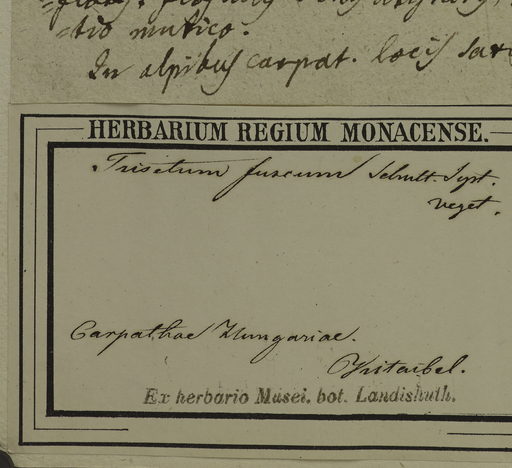 -tio mutico.
In alpibus carpat. locis
HERBARIUM REGIUM MONACENSE.
Trisetum fuscum Schult. Syst.
veget.
Carpathae Hungariae.
Kitaibel.
Ex herbario Musei. bot. Landishuth.